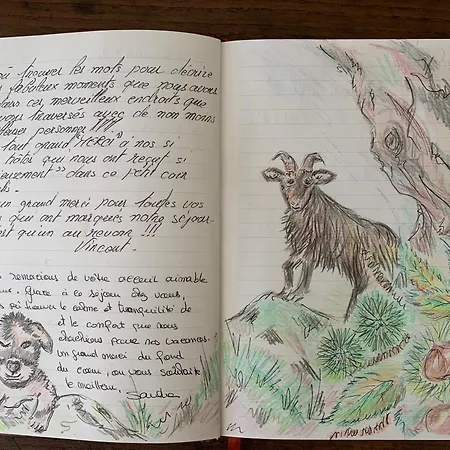 où trouver les mots pour décrire
fabuleux moments que nous avons
dans ces merveilleux endroits que
avons traversés avec de non moins
personnes !!!!
tout grand "Merci" à nos si
hôtes qui nous ont reçut si
" dans ce petit coin
un grand merci pour toutes vos
qui ont marqués notre séjour
qu'un au revoir !!!
Vincent.
remercions de votre accueil aimable
Grâce à ce séjour chez vous,
trouver le calme et tranquilité de
et le confort que nous
pour nos vacances.
un grand merci du fond
du cœur, ou vous souhaite
le meilleur, Sandra